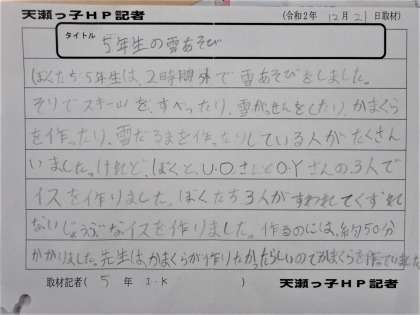 天瀬っ子HP記者 (令和2年 12月21日取材)
タイトル 5年生の雪あそび
ぼくたち5年生は、2時間外で雪あそびをしました。
そりでスキー山を、すべったり、雪がっせんをしたり、かまくら
を作ったり、雪だるまを作ったりしている人がたくさん
いました。けれど、ぼくと、U・OさんとO・Yさんの3人で
イスを作りました。ぼくたち3人がすわれてくずれ
ないじょうぶなイスを作りました。作るのには、約50分
かかりました。先生は、かまくらが作りたかったらしいのでかまくらを作っていました
取材記者( 5 年 I・K ) 天瀬っ子HP記者